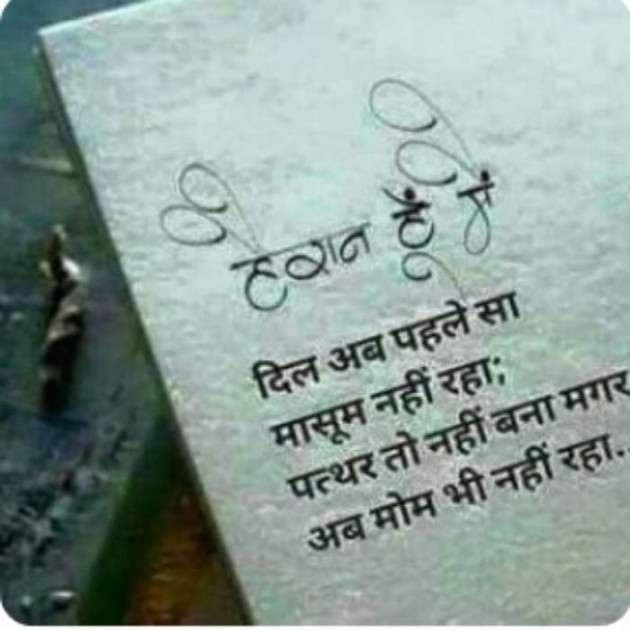 हैरान हूँ मैं
दिल अब पहले सा
मासूम नहीं रहा;
पत्थर तो नहीं बना मगर
अब मोम भी नहीं रहा..